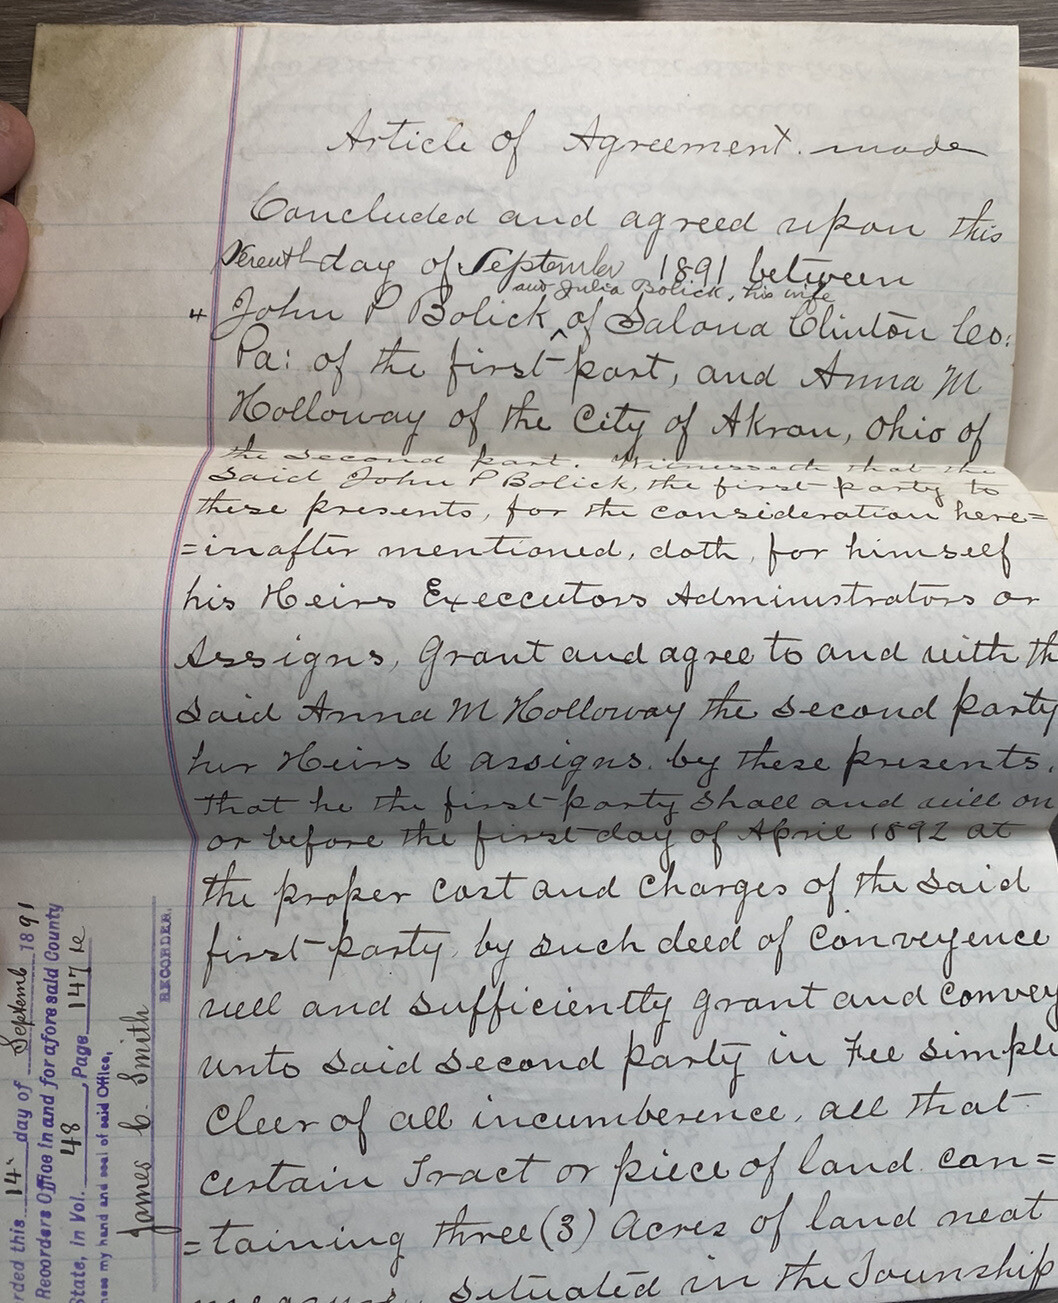 Article of Agreement. made
Concluded and agreed upon this
Seventh day of September 1891 between
and Julia Bolick, his wife
John P Bolick ^ of Salona Clinton Co:
Pa: of the first part, and Anna M
Holloway of the City of Akron, Ohio of
the second part. Witnesseth that the
said John P Bolick, the first party to
these presents, for the consideration here=
=inafter mentioned, doth, for himself
his Heirs Execcutors Administrators or
Assigns, Grant and agree to and with th
said Anna M Holloway the second party
her Heirs & assigns. by these presents.
that he the first party shall and will on
or before the first day of April 1892 at
the proper cost and charges of the said
first party, by such deed of conveyence
well and sufficiently grant and convey
unto said second party in Fee simple
Cleer of all incumberence, all that
certain Tract or piece of land con=
=taining three (3) Acres of land neat
measure, situated in the Township
rded this 14 day of Septemb 1891
Recorders Office in and for aforesaid County
State, in Vol. 48, Page 147 &c
ness my hand and seal of said Office,
James C. Smith
RECORDER.